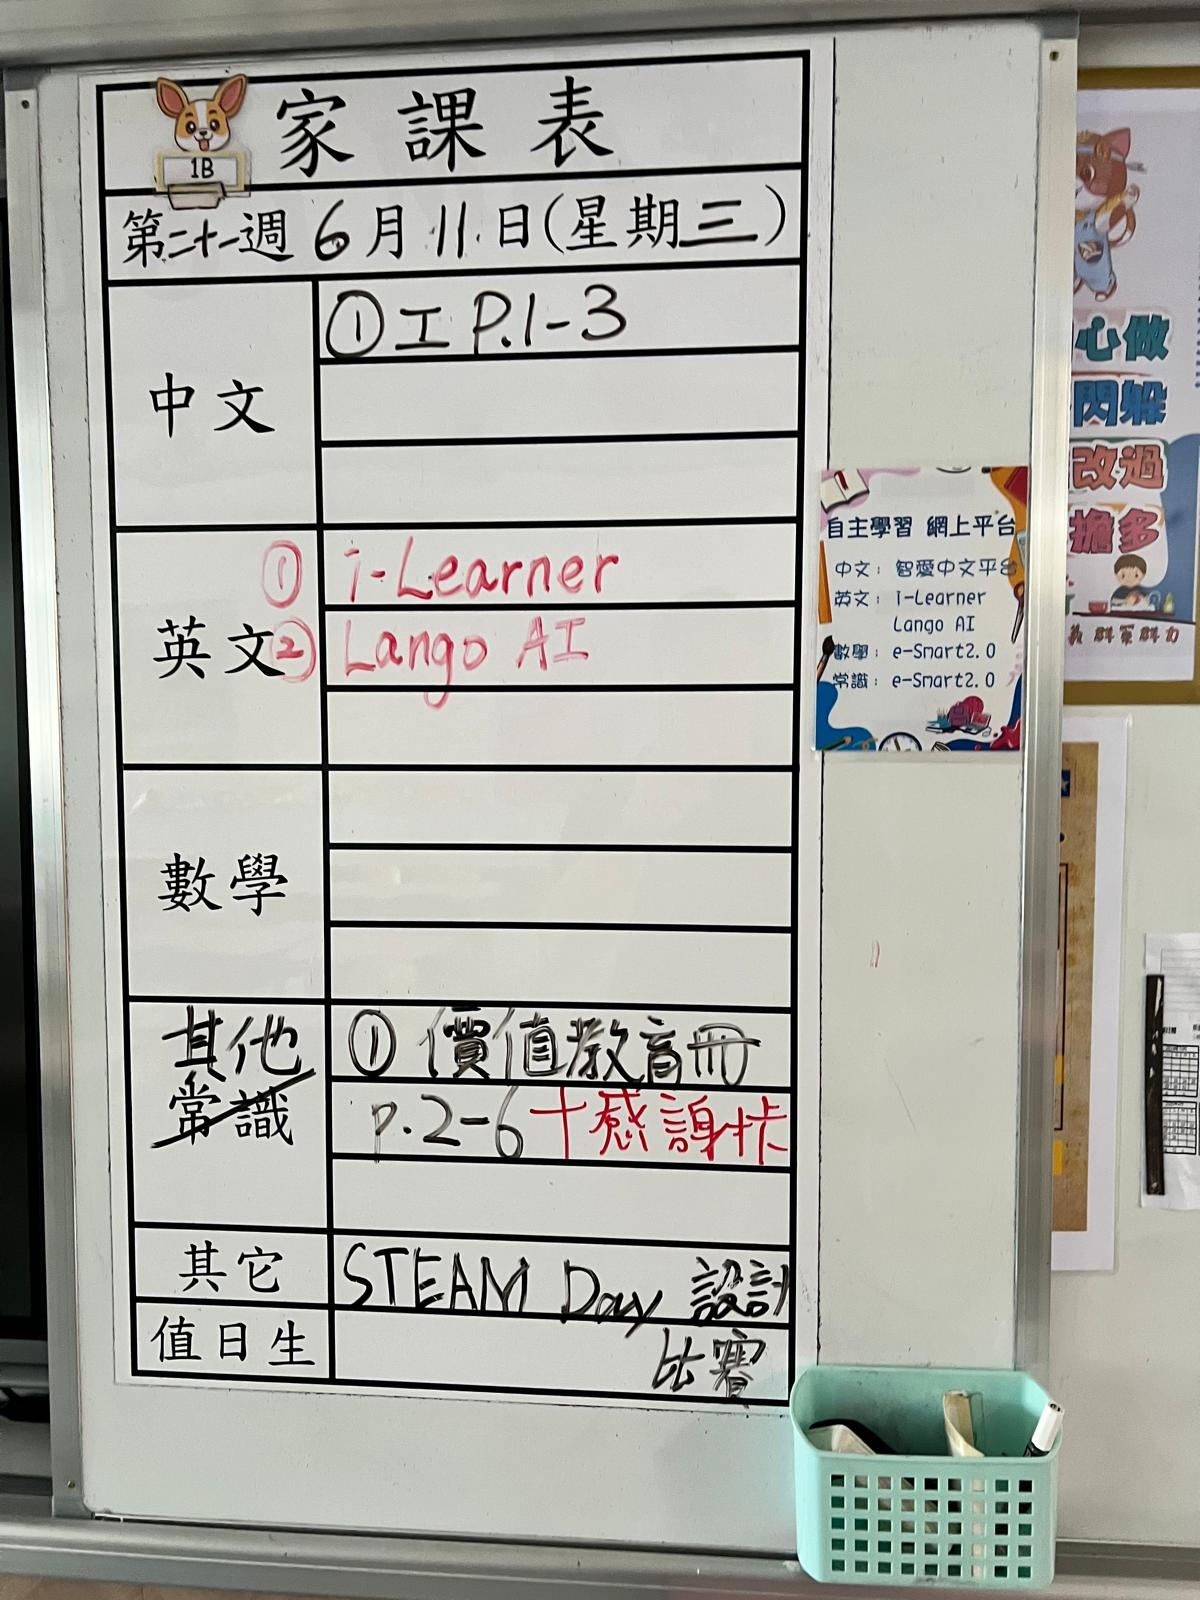 家課表
1B
第二十一週 6月11日(星期三)
中文
①工 P.1-3
英文
① i-Learner
② Lango AI
數學
其他
常識
① 價值教育冊
p.2-6 十感謝卡
其它
STEAM Day 設計
比賽
值日生
自主學習 網上平台
中文：智愛中文平台
英文：i-Learner
Lango AI
數學：e-Smart2.0
常識：e-Smart2.0
心做
閃躲
改過
擔多